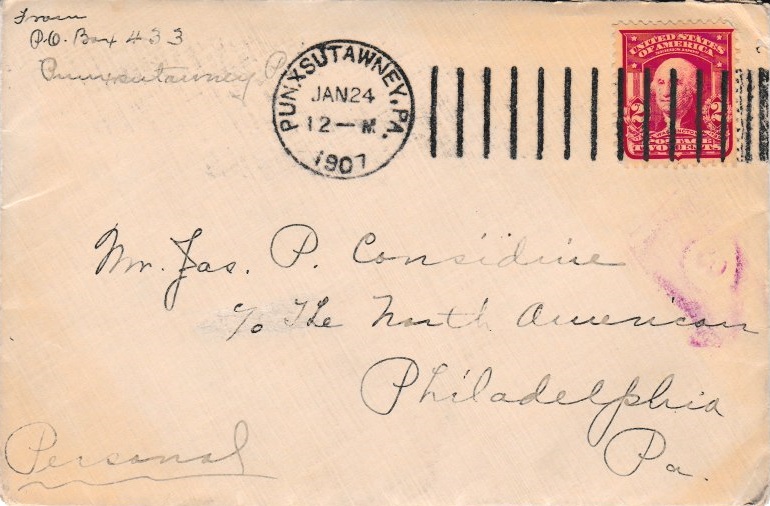 From
P.O. Box 433
Punxsutawney P
PUNXSUTAWNEY, PA.
JAN 24
12 — M
1907
UNITED STATES
OF AMERICA
2 2
WASHINGTON
POSTAGE
TWO CENTS
Mr. Jas. P. Considine
c/o The North American
Philadelphia
Pa.
Personal